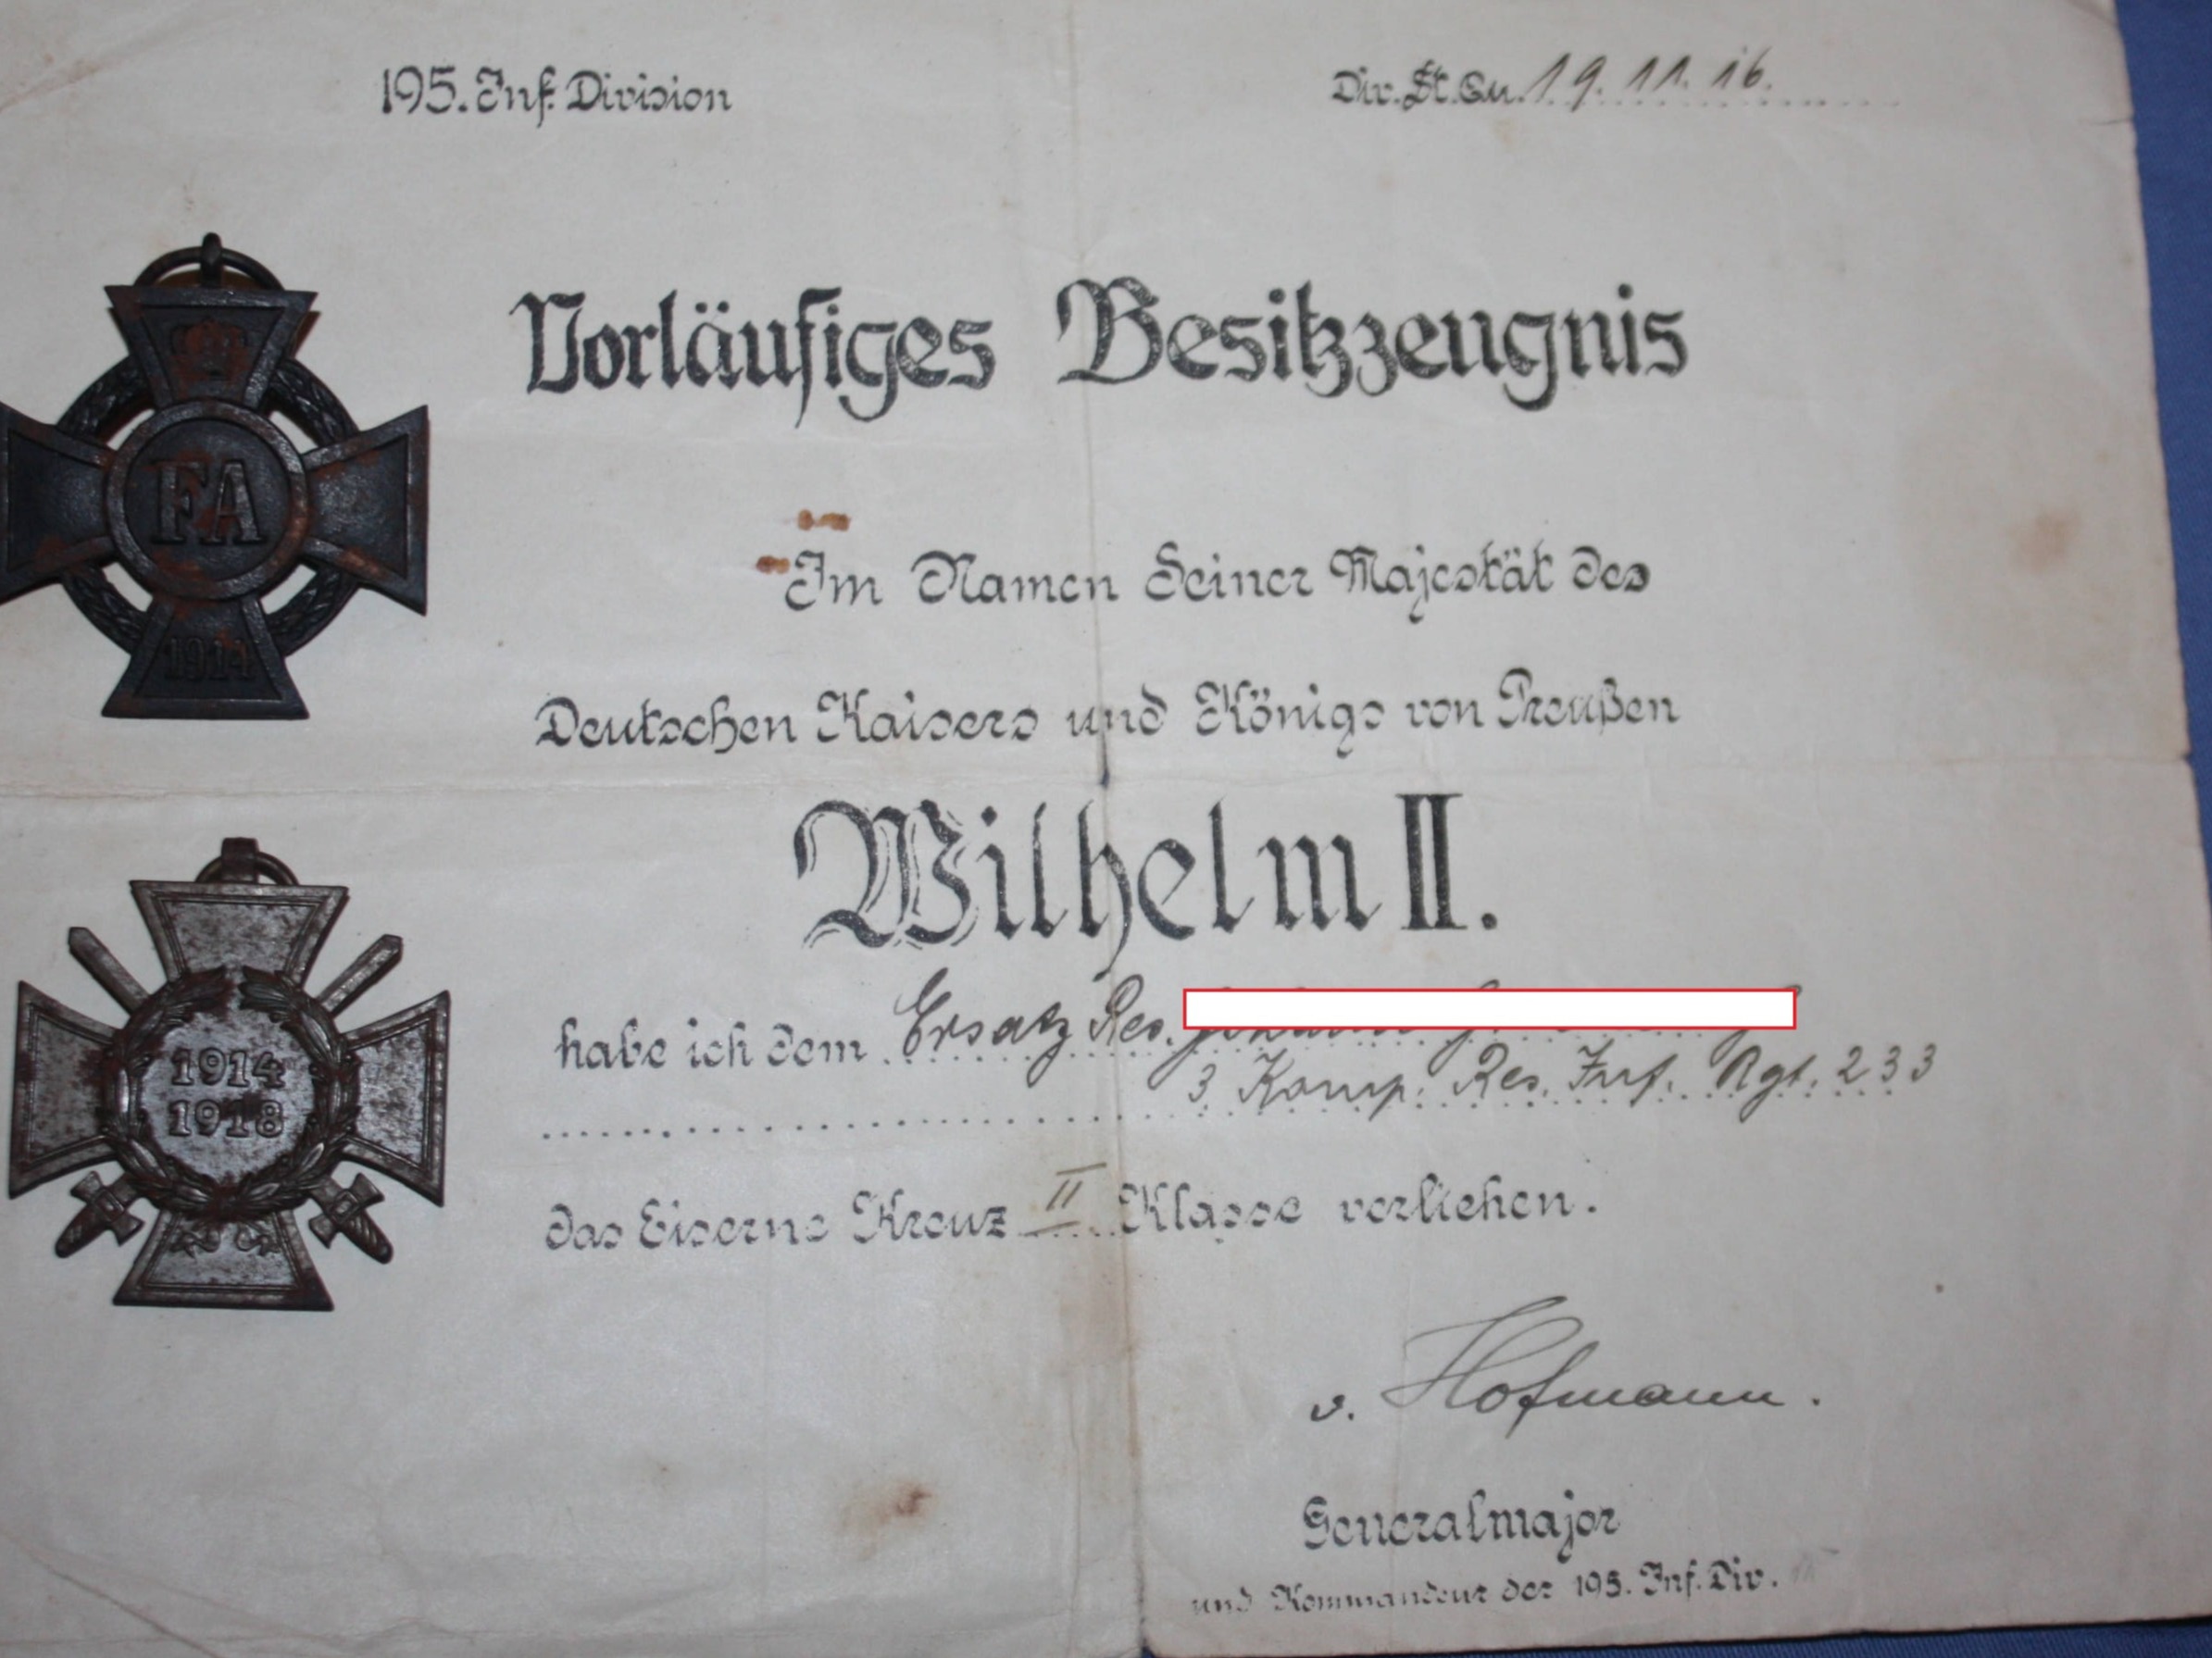 195. Inf. Division
Div. St. Qu. 19. 11. 16.
Vorläufiges Besitzzeugnis
FA
1914
Im Namen Seiner Majestät des
Deutschen Kaisers und Königs von Preußen
Wilhelm II.
1914
1918
habe ich dem Ersatz Res.
3 Komp. Res. Inf. Rgt. 233
das Eiserne Kreuz II Klasse verliehen.
v. Hofmann.
Generalmajor
und Kommandeur der 195. Inf. Div.